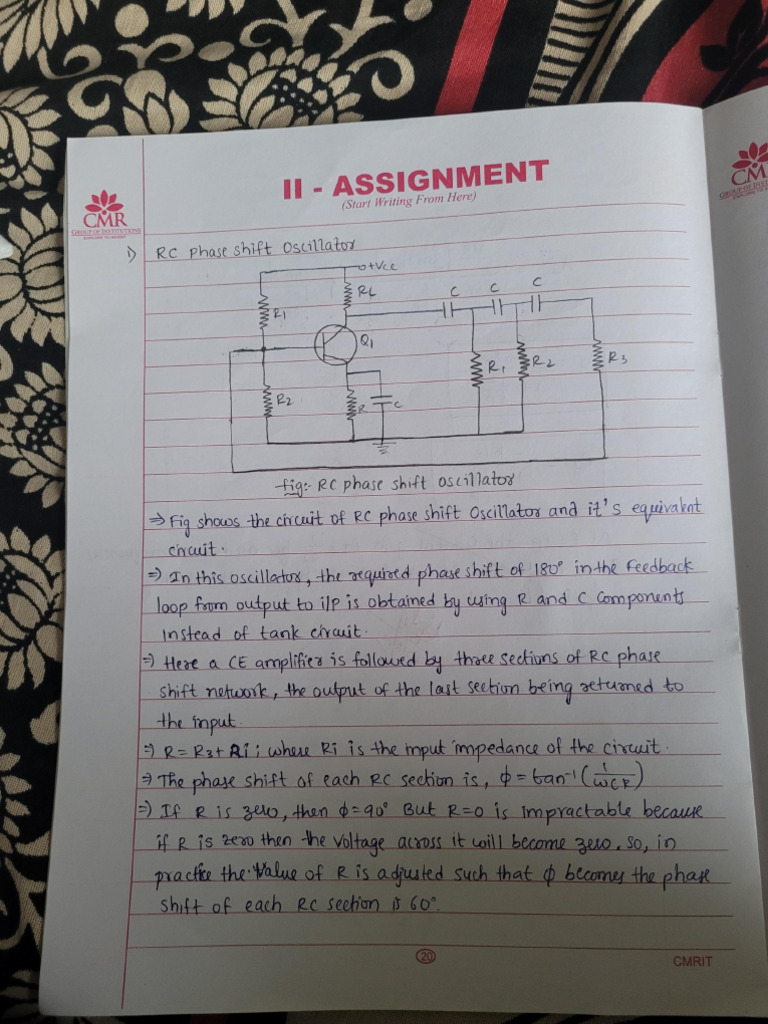 II - ASSIGNMENT
(Start Writing From Here)
CMR
GROUP OF INSTITUTIONS
EXPLORE TO INVENT
1) RC Phase shift Oscillator
+Vcc
RL
R1
Q1
C
C
C
R1
R2
R3
R2
R
C
fig:- RC phase shift oscillator
⇒ Fig shows the circuit of RC phase shift Oscillator and it's equivalent
circuit.
⇒ In this oscillator, the required phase shift of 180° in the Feedback
loop from output to i/p is obtained by using R and C components
instead of tank circuit.
⇒ Here a CE amplifier is followed by three sections of RC phase
shift network, the output of the last section being returned to
the input.
⇒ R = R3 + Ri ; where Ri is the input impedance of the circuit.
⇒ The phase shift of each RC section is, ϕ = tan⁻¹(1/ωCR)
⇒ If R is zero, then ϕ = 90° But R=0 is impractable because
if R is zero then the voltage across it will become zero. so, in
practice the value of R is adjusted such that ϕ becomes the phase
shift of each RC section is 60°.
20
CMRIT
CM
GROUP OF INSTI